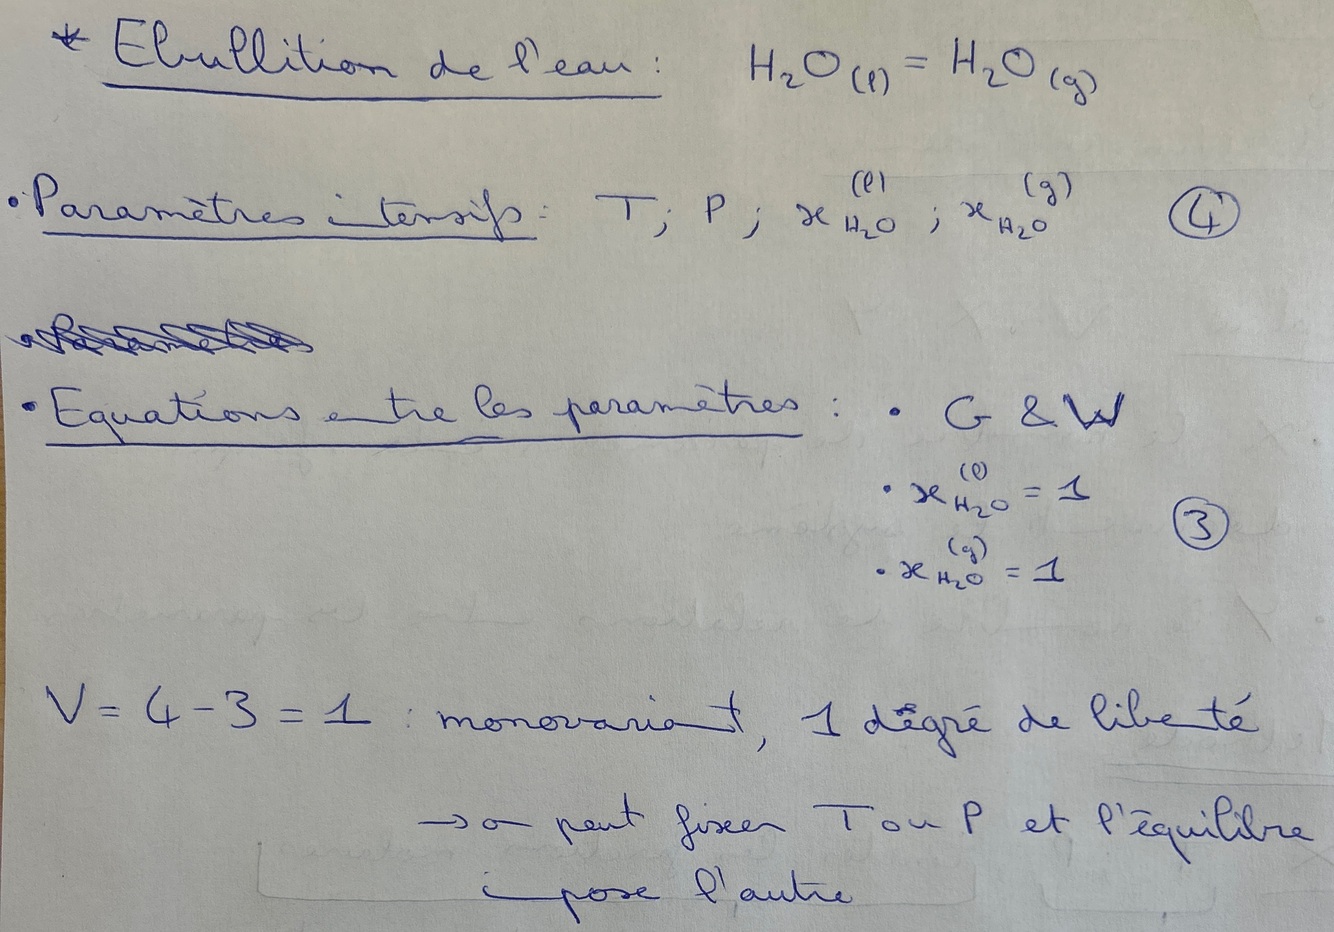 * Ebullition de l'eau : H₂O(l) = H₂O(g)
• Paramètres intensifs : T ; P ; x H₂O (l) ; x H₂O (g) ④
• Equations entre les paramètres : • G & W
• x H₂O (l) = 1
③
• x H₂O (g) = 1
V = 4 - 3 = 1 : monovariant, 1 dégré de liberté
→ on peut fixer T ou P et l'équilibre
impose l'autre